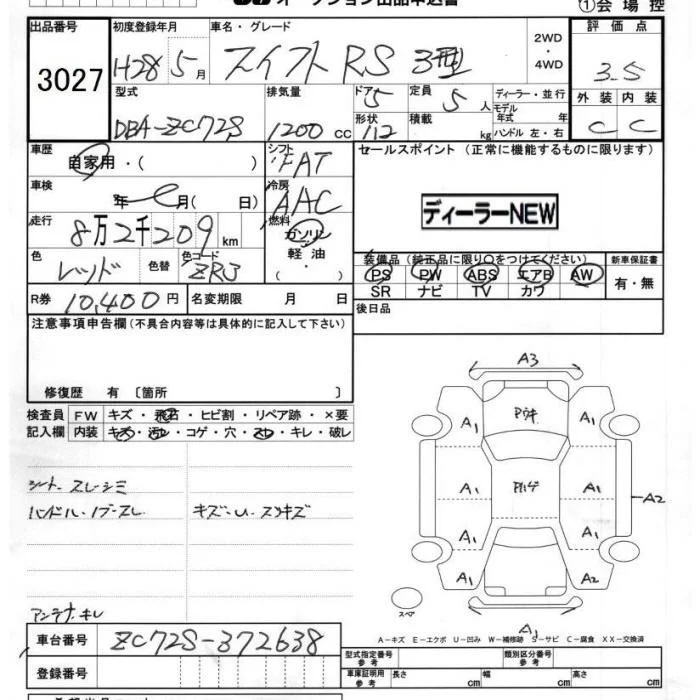 オークション出品申込書
①会場控
出品番号
3027
初度登録年月
H28 5月
車名・グレード
スイフト RS 3型
2WD
・
4WD
評価点
3.5
外装 内装
C C
型式
DBA-ZC72S
排気量
1200 cc
ドア 5
形状 112
定員 5 人
積載 kg
ディーラー・並行
モデル年式 年
ハンドル 左・右
車歴
自家用・( )
シフト
FAT
セールスポイント (正常に機能するものに限ります)
車検
年 月( 日)
冷房
AAC
ディーラーNEW
走行
8万2千209 km
燃料
ガソリン
軽油
( ・ )
色
レッド
色替
色コード
ZR3
装備品 (純正品に限り○をつけてください)
PS PW ABS エアB AW
SR ナビ TV カワ
新車保証書
有・無
R券 10,400円
名変期限 月 日
後日品
注意事項申告欄(不具合内容等は具体的に記入して下さい)
修復歴 有 〔箇所 〕
検査員記入欄
FW キズ・飛石・ヒビ割・リペア跡・×要
内装 キズ・汚レ・コゲ・穴・スレ・キレ・破レ
シート スレ・シミ
ハンドル・ノブ・スレ
キズ・U・スリキズ
アンテナ キレ
A3
A1
A1
A1
A1
A2
A1
A1
A1
A2
A1
スペア
A-キズ E-エクボ U-凹み W-補修跡 S-サビ C-腐食 XX-交換済
車台番号 ZC72S-372638
登録番号
型式指定番号 参考
類別区分番号 参考
車庫証明用 参考
長さ cm
幅 cm
高さ cm